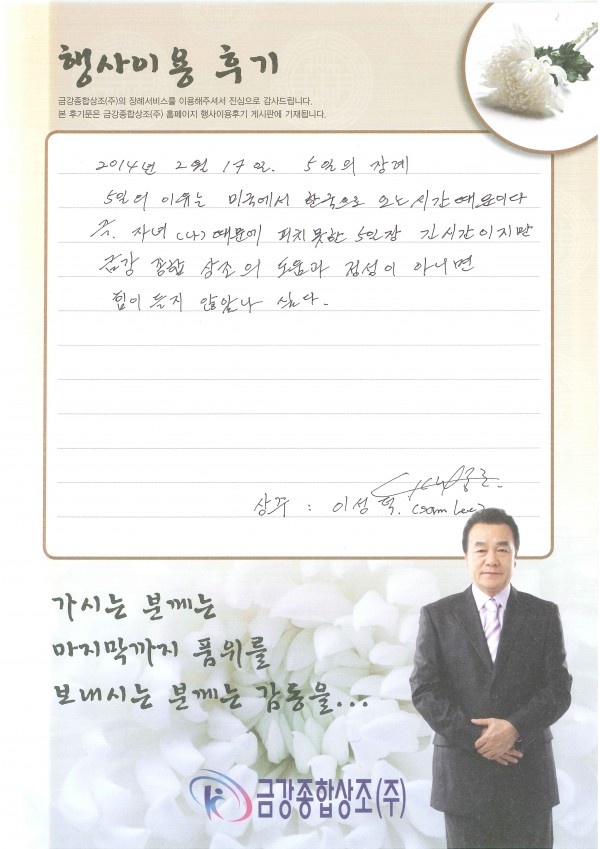 행사이용 후기
금강종합상조(주)의 장례서비스를 이용해주셔서 진심으로 감사드립니다.
본 후기문은 금강종합상조(주) 홈페이지 행사이용후기 게시판에 기재됩니다.
2014년 2월 17일. 5일의 장례
5일의 이유는 미국에서 한국으로 오는 시간 때문이다
즉. 자녀 (나) 때문에 피치못한 5일장 긴시간이지만
금강 종합 상조의 도움과 정성이 아니면
힘이 들지 않았나 싶다.
상주 : 이성혁. (Sam Lee)
가시는 분께는
마지막까지 품위를
보내시는 분께는 감동을...
금강종합상조(주)